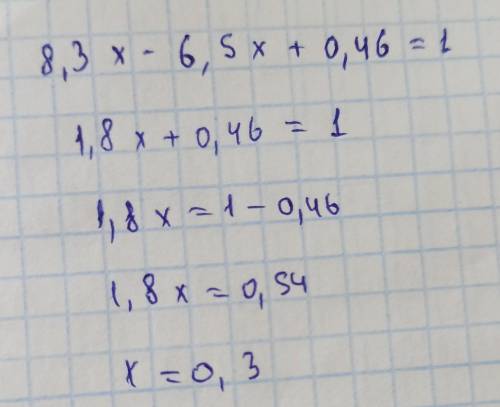 8,3 x - 6,5 x + 0,46 = 1
1,8 x + 0,46 = 1
1,8 x = 1 - 0,46
1,8 x = 0,54
x = 0,3